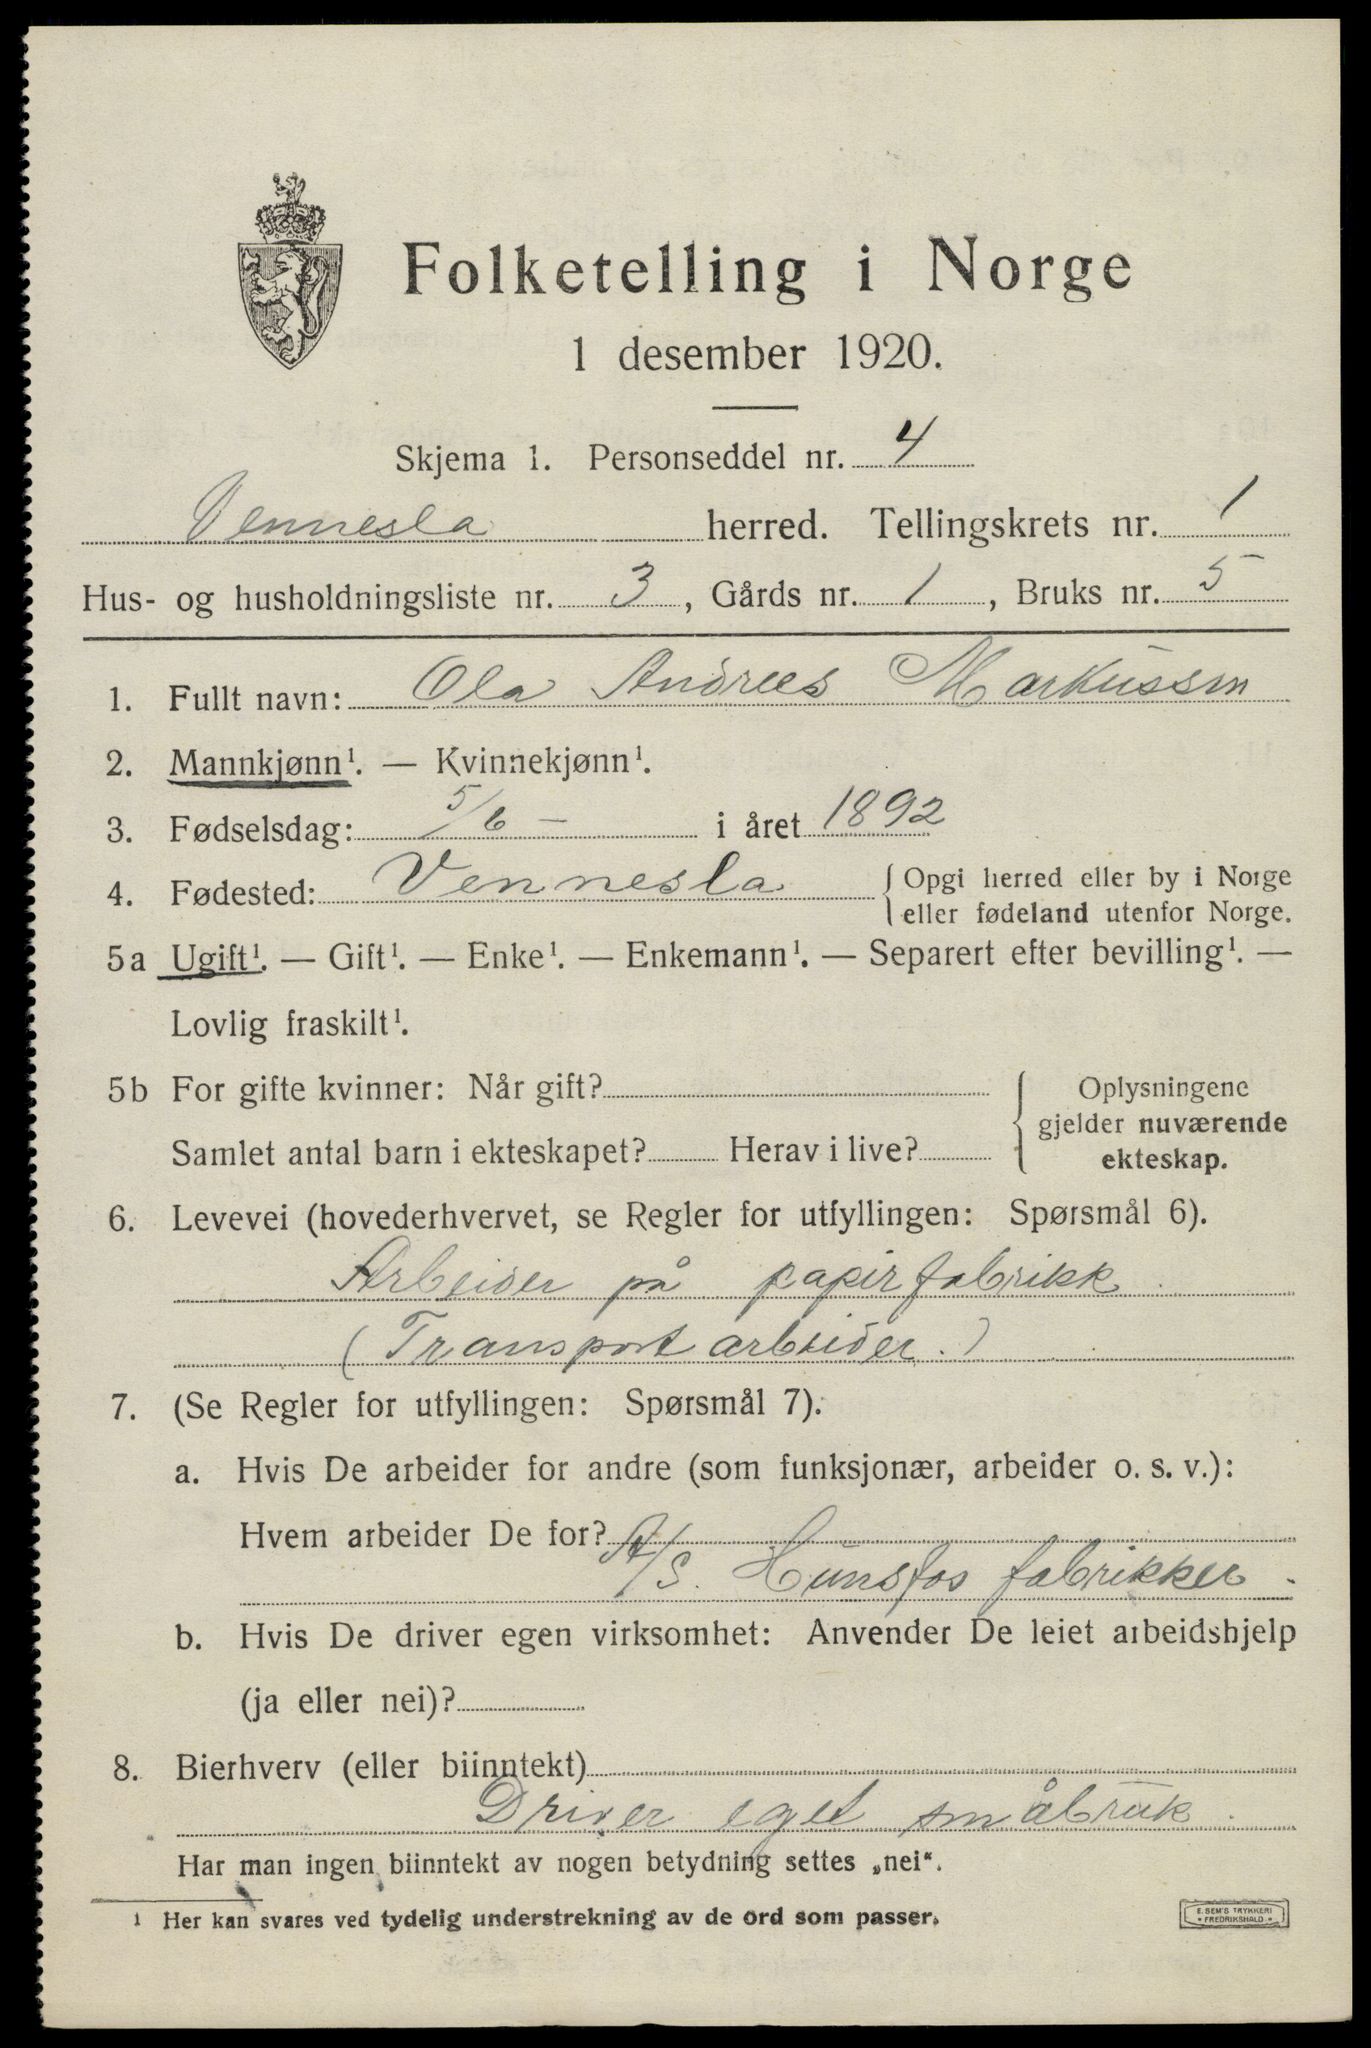 Folketelling i Norge
1 desember 1920.
Skjema 1. Personseddel nr. 4
Vennesla herred. Tellingskrets nr. 1
Hus- og husholdningsliste nr. 3, Gårds nr. 1, Bruks nr. 5
1. Fullt navn: Ola Andrees Markussen
2. Mannkjønn¹. — Kvinnekjønn¹.
3. Fødselsdag: 5/6 - i året 1892
4. Fødested: Vennesla { Opgi herred eller by i Norge
eller fødeland utenfor Norge.
5a Ugift¹. — Gift¹. — Enke¹. — Enkemann¹. — Separert efter bevilling¹. —
Lovlig fraskilt¹.
5b For gifte kvinner: Når gift?
Samlet antal barn i ekteskapet? Herav i live?
{ Oplysningene
gjelder nuværende
ekteskap.
6. Levevei (hovederhvervet, se Regler for utfyllingen: Spørsmål 6).
Arbeider på papirfabrikk.
(Transportarbeider.)
7. (Se Regler for utfyllingen: Spørsmål 7).
a. Hvis De arbeider for andre (som funksjonær, arbeider o. s. v.):
Hvem arbeider De for?
A/S. Hunsfos fabrikker.
b. Hvis De driver egen virksomhet: Anvender De leiet arbeidshjelp
(ja eller nei)?
8. Bierhverv (eller biinntekt)
Driver eget småbruk.
Har man ingen biinntekt av nogen betydning settes „nei“.
¹ Her kan svares ved tydelig understrekning av de ord som passer.
E. SEM'S TRYKKERI
• FREDRIKSHALD •